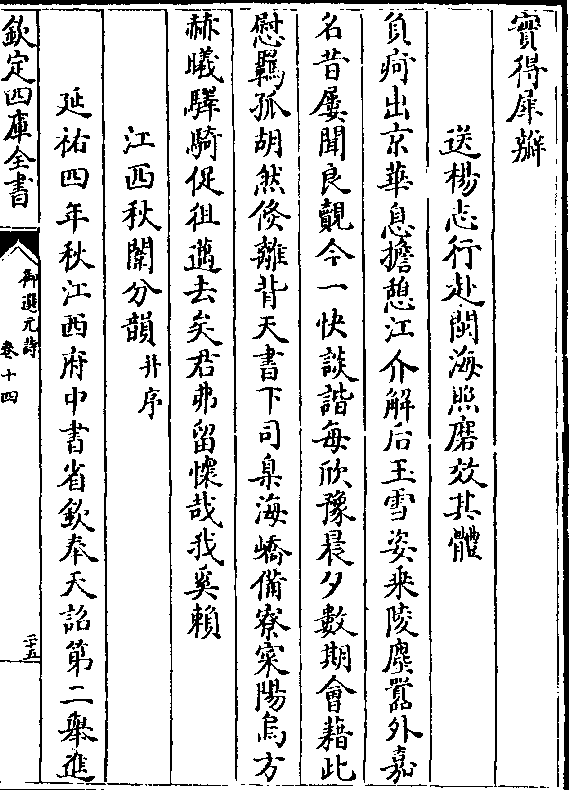 實得犀辦
送楊志行赴閩海照磨效其體
負痾出京華息擔憩江介解后玉雪姿乗陵塵囂外嘉
名昔屢聞良覿今一快談諧每欣豫晨夕數期會藉此
慰羈孤胡然倐離背天書下司臬海嶠備寮寀陽烏方
赫曦驛騎促徂邁去矣君弗留懷哉我奚賴
江西秋闈分韻并序
延祐四年秋江西府中書省欽奉天詔第二舉進
欽定四庫全書
御選元詩
卷十四
二十五